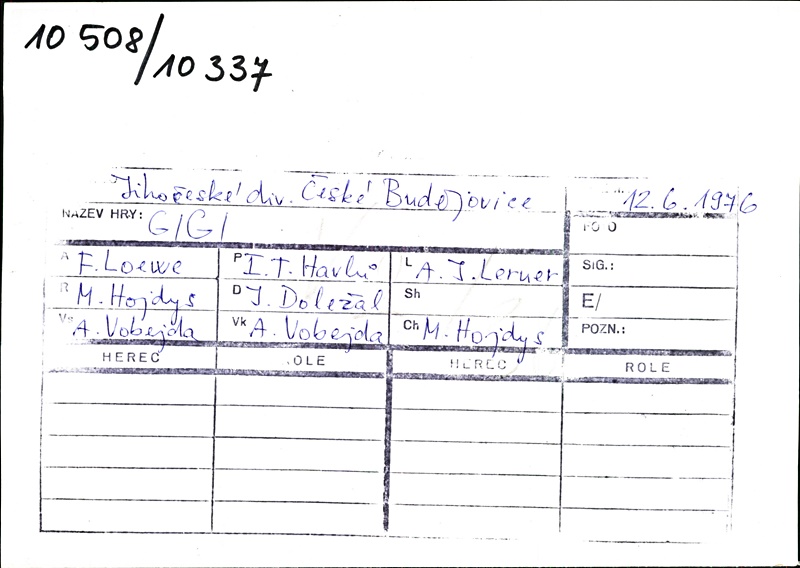 10 508/10 337
Jihočeské div. České Budějovice 12.6.1976
NÁZEV HRY: GIGI
A F. Loewe P I. T. Havlů L A. J. Lerner SIG.:
R M. Hojdys D J. Doležal Sh E/
Vs A. Vobejda Vk A. Vobejda Ch M. Hojdys POZN.:
HEREC ROLE HEREC ROLE